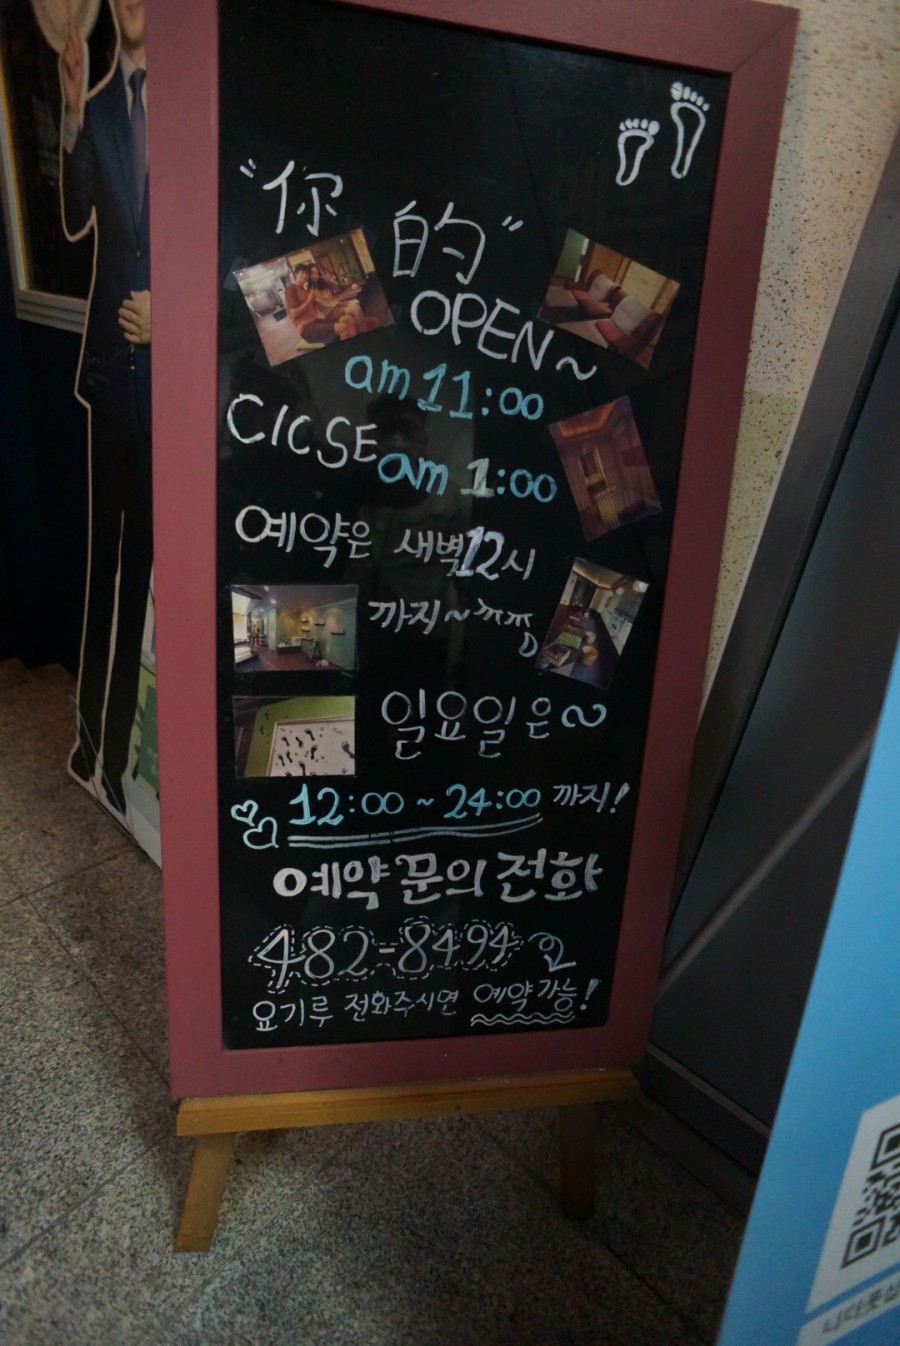 "你 的"
OPEN~
am 11:00
ClCSE am 1:00
예약은 새벽12시
까지~ㅠㅠ
일요일은~
12:00~24:00 까지!
예약문의전화
482-8494
요기루 전화주시면 예약가능!